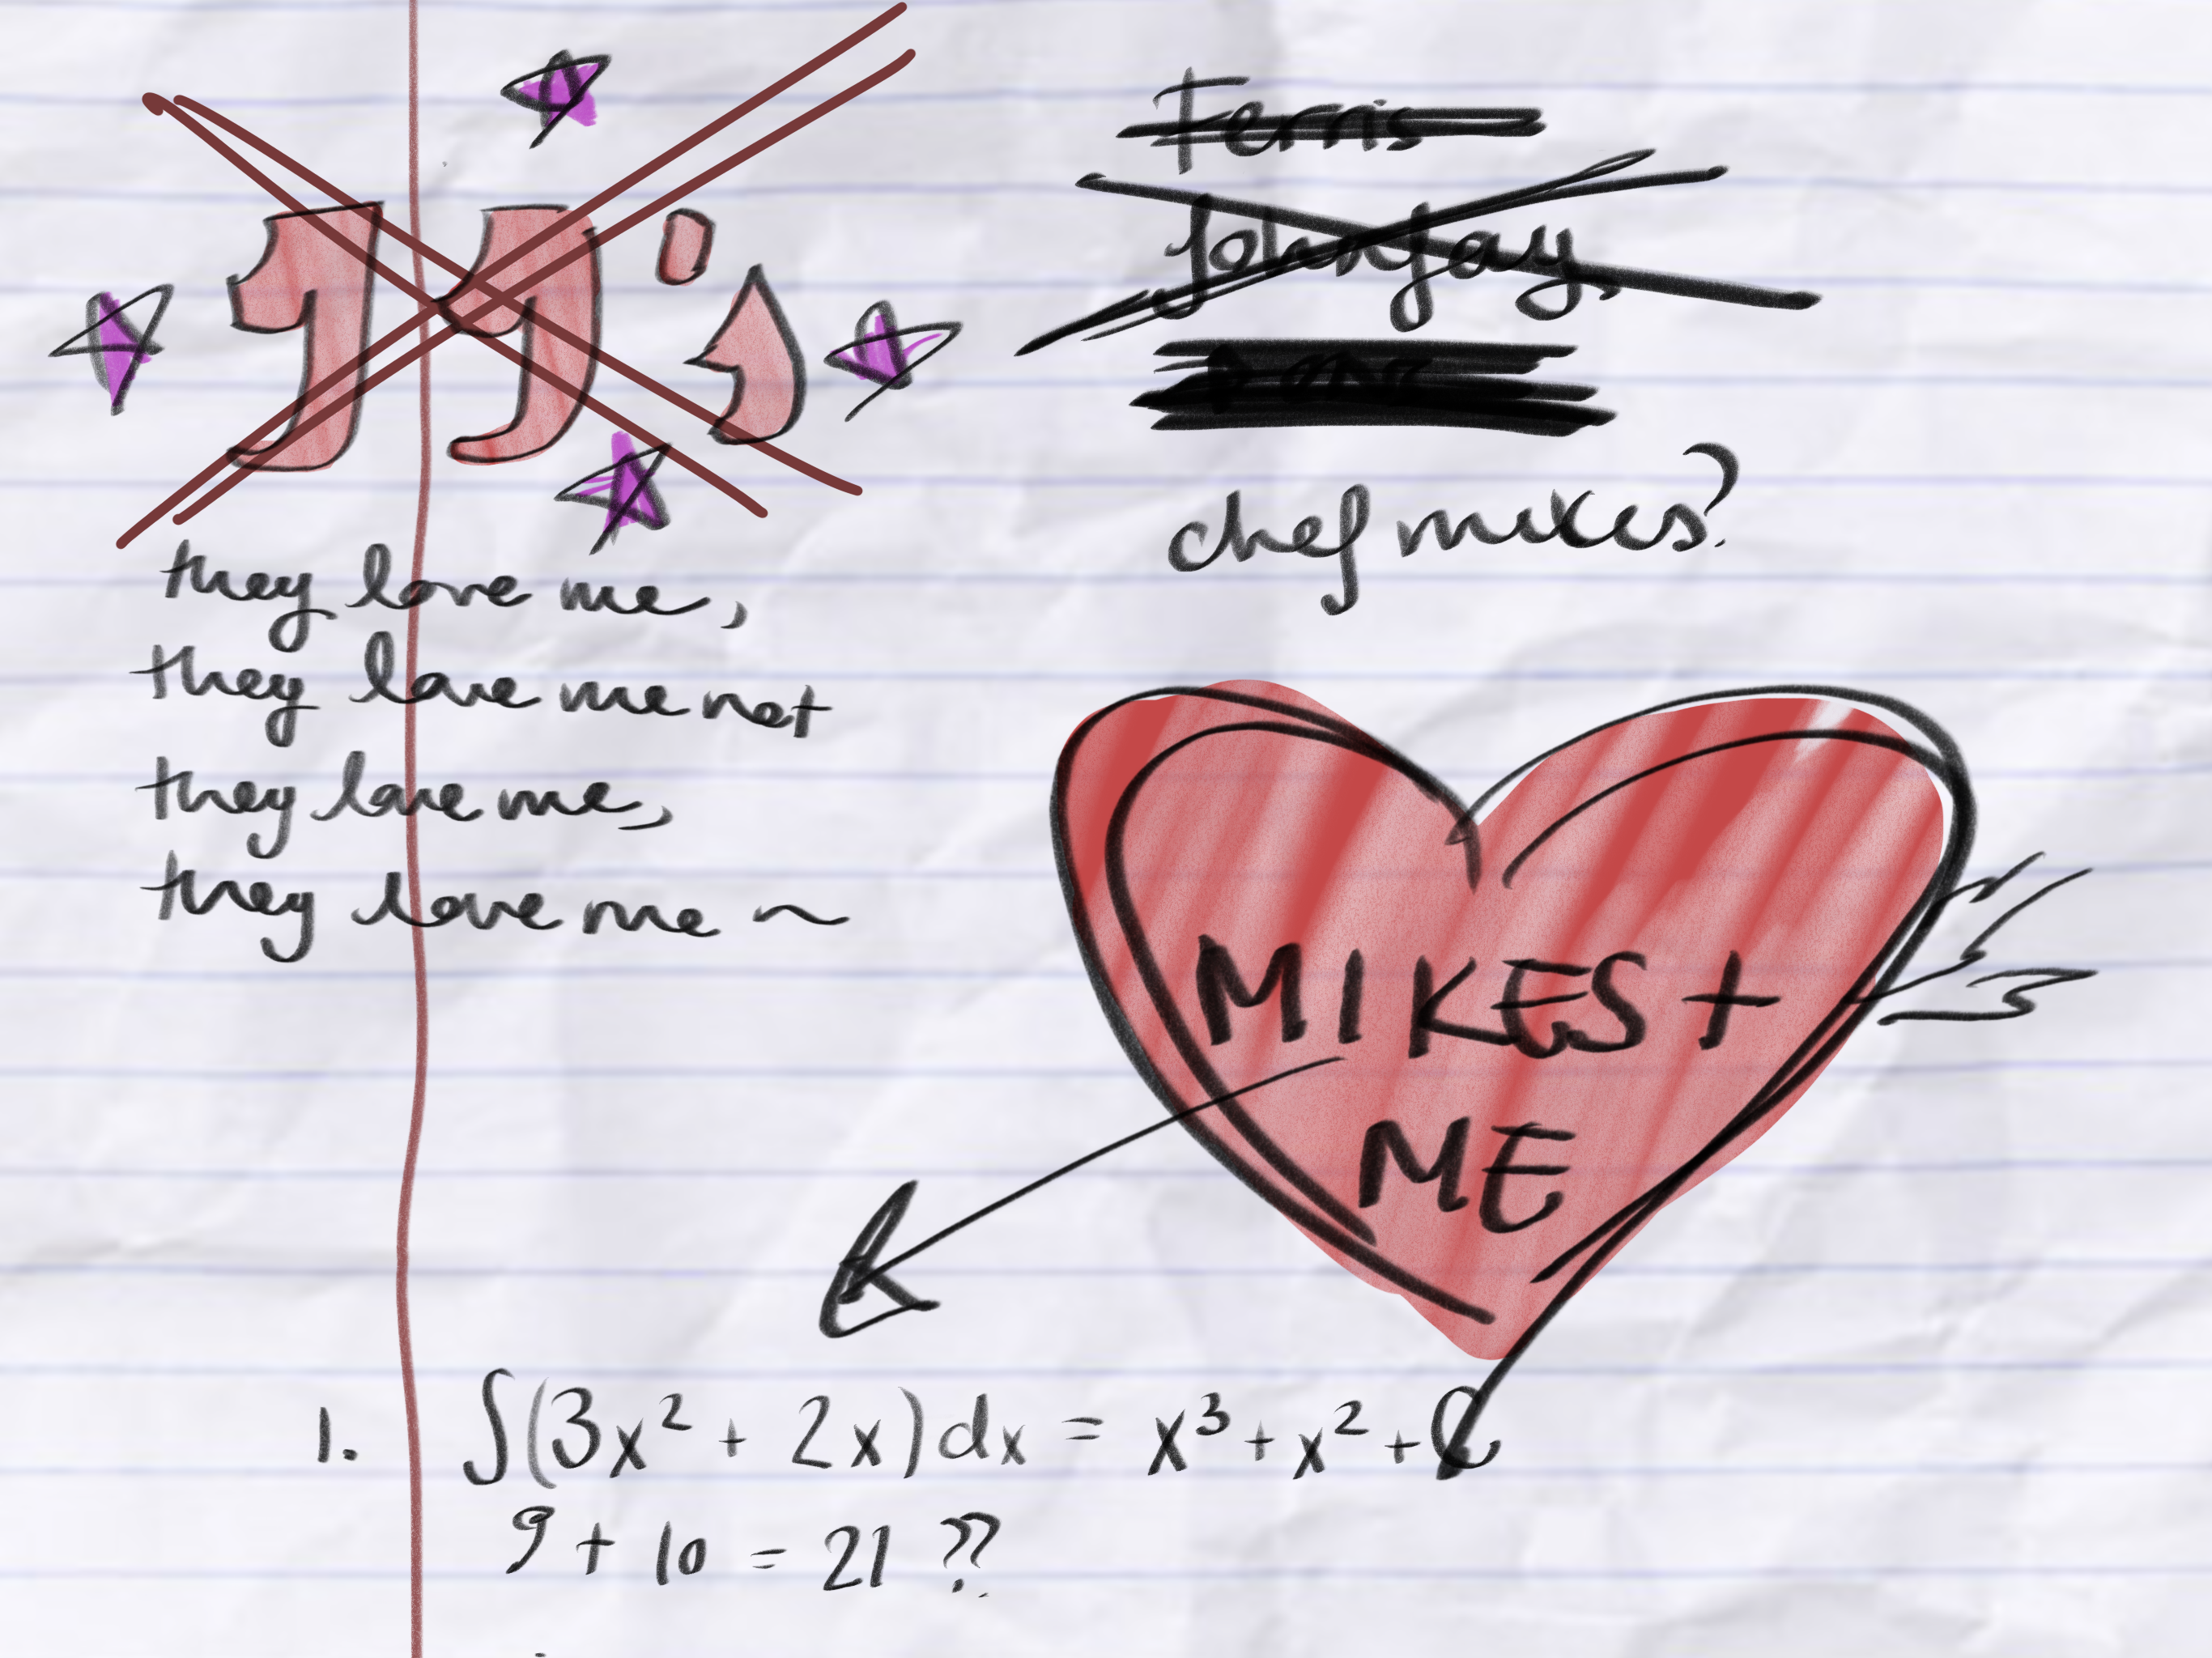 JJ's
they love me,
they love me not
they love me,
they love me ~
Ferris
John Jay,
chef mikes?
MIKES +
ME
1. ∫(3x² + 2x)dx = x³ + x² + C
9 + 10 = 21 ??